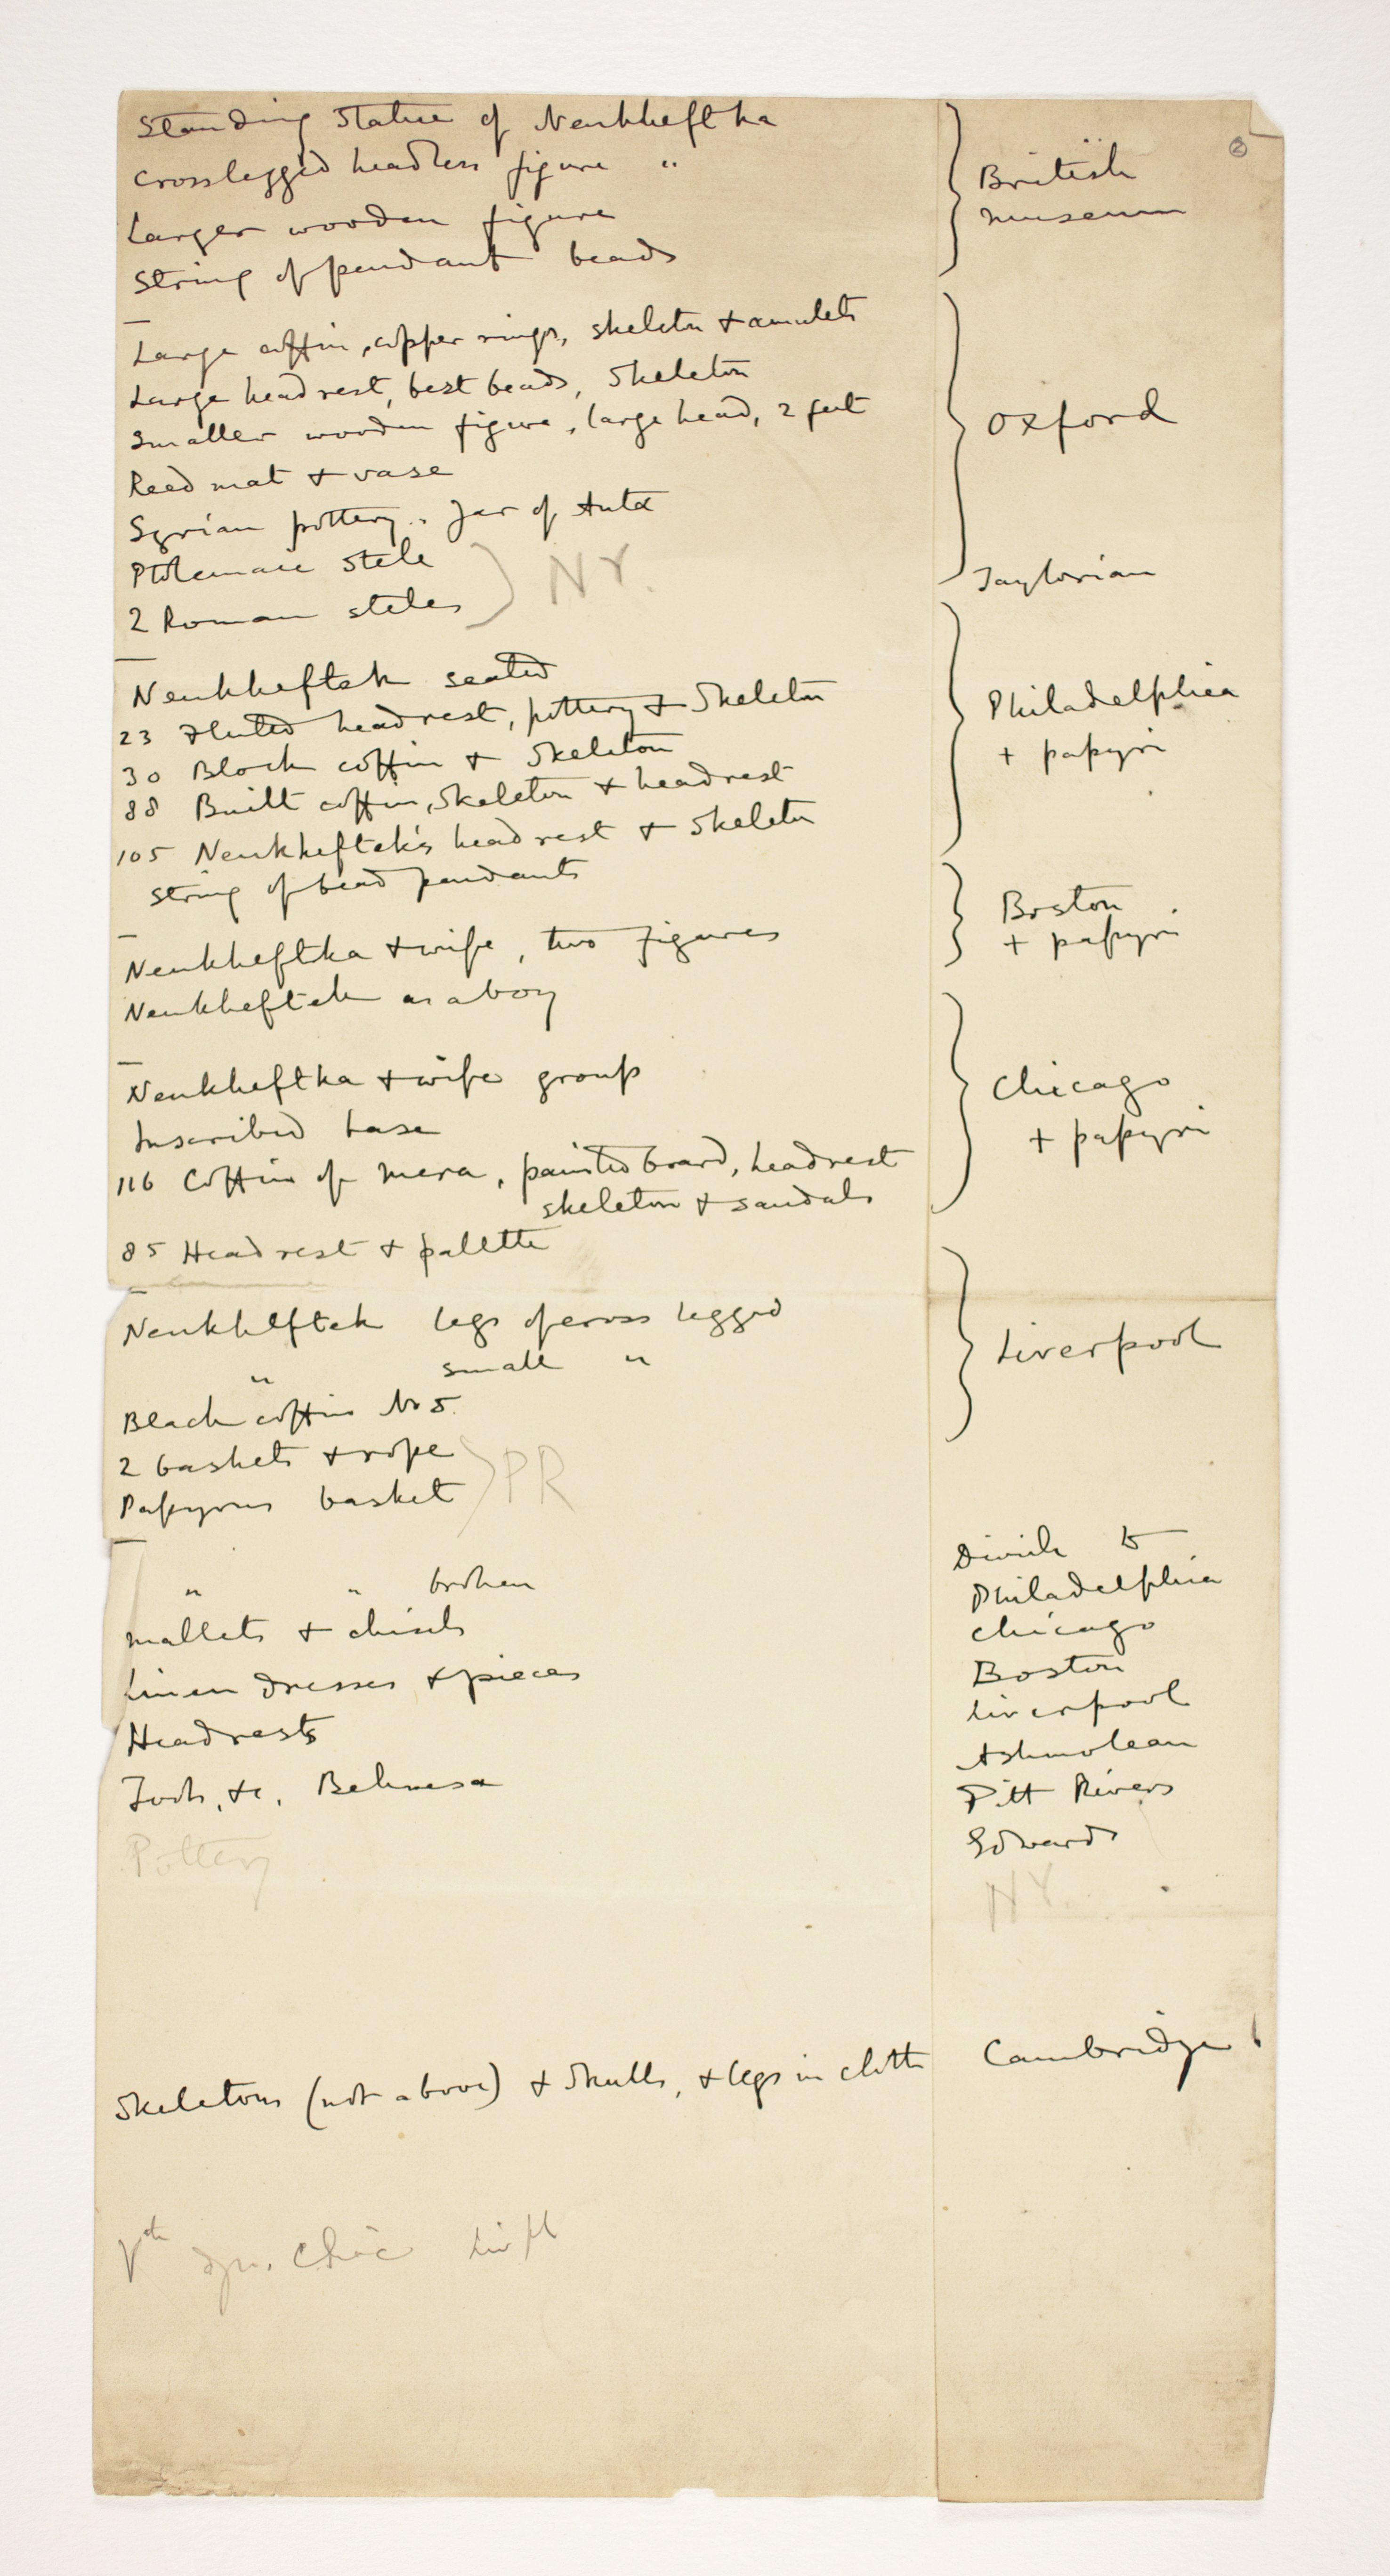 ②
Standing Statue of Nenkheftka
Crosslegged headless figure "
Larger wooden figure
String of pendant beads
British
Museum
Large coffin, copper rings, skeleton + amulets
Large headrest, best beads, Skeleton
Smaller wooden figure, large head, 2 feet
Reed mat + vase
Syrian pottery. Jar of Antα
Ptolemaic Stele
2 Roman steles
NY.
Oxford
Taylorian
Nenkheftek seated
23 Fluted headrest, pottery + Skeleton
30 Block coffin + Skeleton
88 Built coffin, Skeleton + headrest
105 Nenkheftek's headrest + Skeleton
String of bead pendants
Philadelphia
+ papyri
Nenkheftka + wife, two figures
Nenkheftek as a boy
Boston
+ papyri
Nenkheftka + wife group
Inscribed base
116 Coffin of Mera, painted board, headrest
skeleton + sandals
85 Headrest + palette
Chicago
+ papyri
Nenkheftek legs of cross legged
" small "
Black coffin No 5.
2 baskets + rope
Papyrus basket
PR
Liverpool
" " broken
Mallets + chisels
Linen dresses + pieces
Headrests
Tools, &c, Behnesa
Pottery
Divide to
Philadelphia
Chicago
Boston
Liverpool
Ashmolean
Pitt Rivers
Edwards
NY.
Skeletons (not above) + Skulls, + legs in cloth
Cambridge
Vth dyn. Chic Livpl